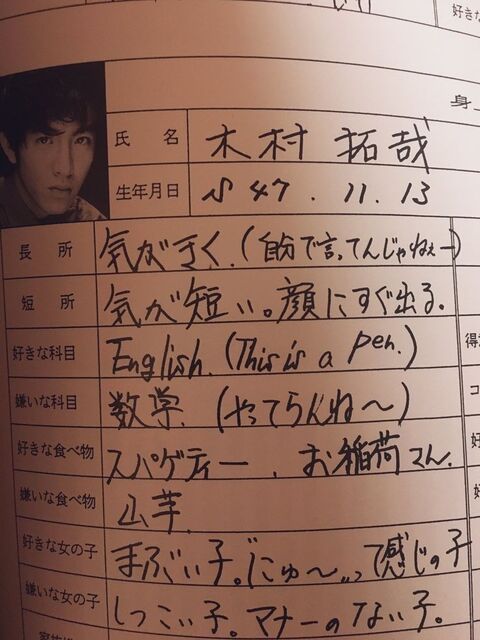 好きな
身
氏名 木村 拓哉
生年月日 S 47. 11. 13
長所 気がきく。(自分で言ってんじゃねぇー)
短所 気が短い。顔にすぐ出る。
好きな科目 English. (This is a pen.)
得
嫌いな科目 数学. (やってらんね〜)
コ
好きな食べ物 スパゲティー、お稲荷さん.
嫌いな食べ物 山芋.
好きな女の子 まぶい子。“にゅ〜„って感じの子
嫌いな女の子 しつこい子。マナーのない子。